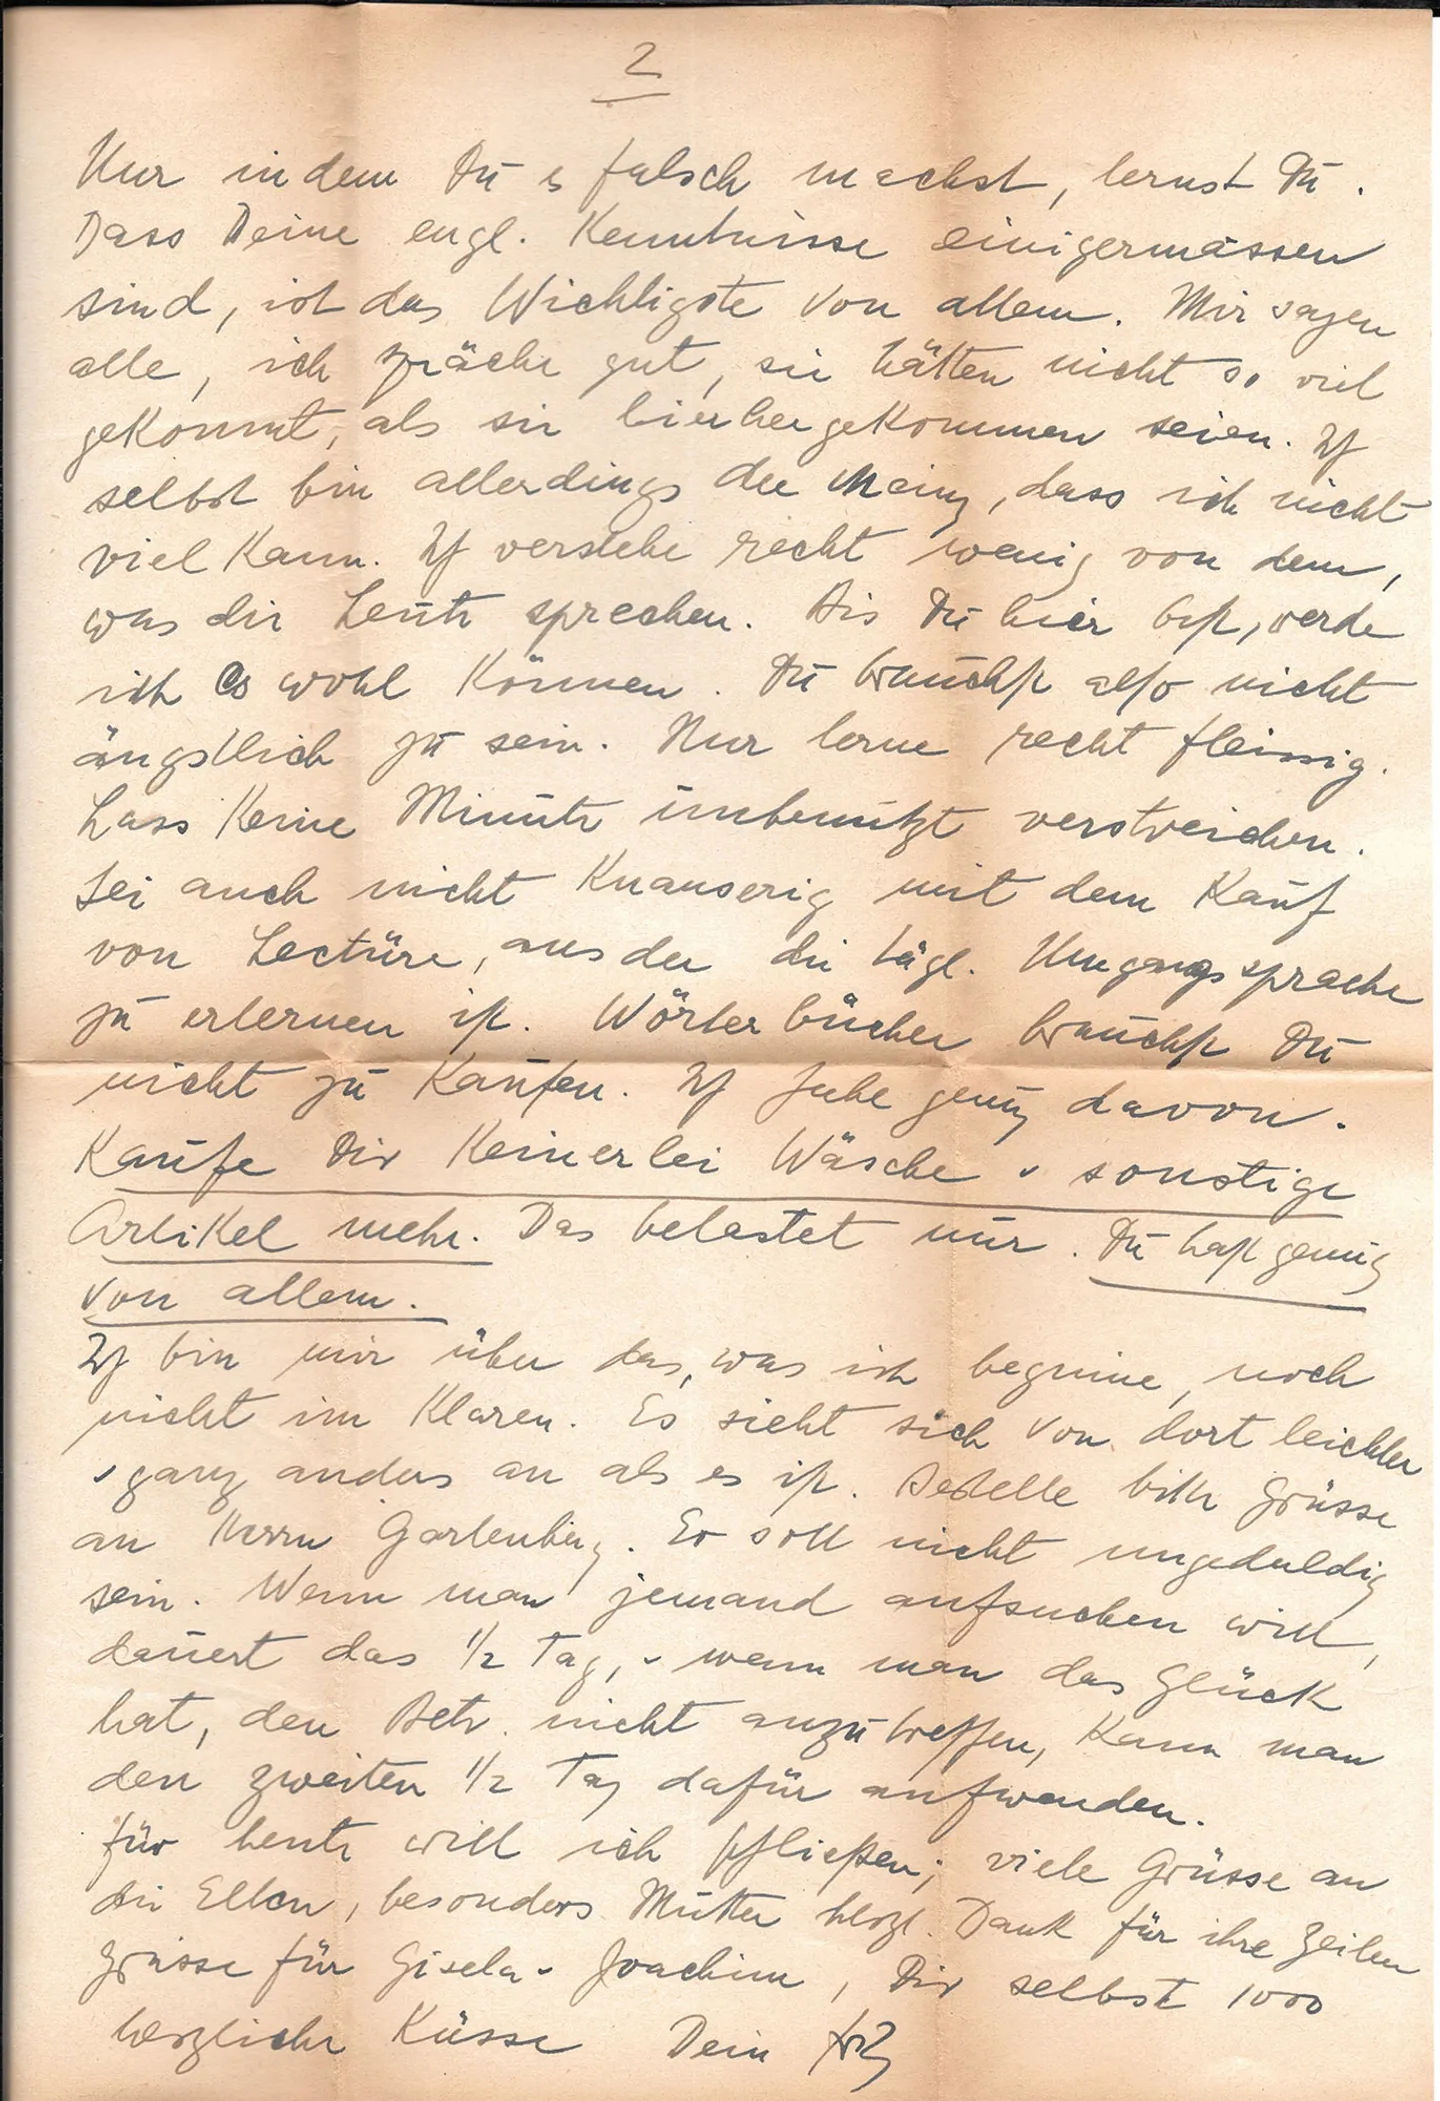 2
Nur indem Du es falsch machst, lernst Du.
Dass Deine engl. Kenntnisse einigermassen
sind, ist das Wichtigste von allem. Mir sagen
alle, ich spräche gut, sie hätten nicht so viel
gekonnt, als sie hierher gekommen seien. Ich
selbst bin allerdings der Meing, dass ich nicht
viel kann. Ich verstehe recht wenig von dem,
was die Leute sprechen. Bis Du hier bist, werde
ich es wohl können. Du brauchst also nicht
ängstlich zu sein. Nur lerne recht fleissig.
Lass keine Minute unbenützt verstreichen.
Sei auch nicht knauserig mit dem Kauf
von Lectüre, aus der die tägl. Umgangssprache
zu erlernen ist. Wörterbücher brauchst Du
nicht zu kaufen. Ich habe genug davon.
Kaufe Dir keinerlei Wäsche u sonstige
Artikel mehr. Das belastet nur. Du hast genug
von allem.
Ich bin mir über das, was ich beginne, noch
nicht im Klaren. Es sieht sich von dort leichter
u ganz anders an als es ist. Bestelle bitte Grüsse
an Herrn Gartenberg. Er soll nicht ungeduldig
sein. Wenn man jemand aufsuchen will,
dauert das 1/2 Tag, u wenn man das Glück
hat, den Betr. nicht anzutreffen, kann man
den zweiten 1/2 Tag dafür aufwenden.
Für heute will ich schließen; viele Grüsse an
die Eltern, besonders Mutter herzl. Dank für ihre Zeilen
Grüsse für Gisela u Joachim, Dir selbst 1000
herzliche Küsse Dein